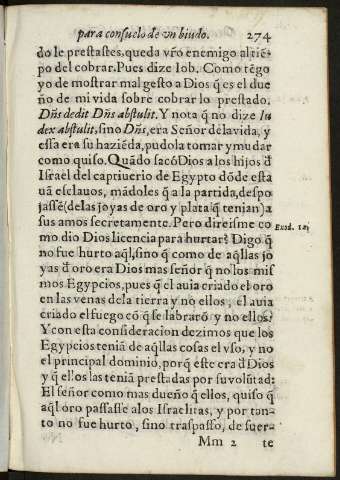 para consuelo de vn biudo. 274
do le prestastes, queda vr̃o enemigo al tiẽ-
po del cobrar. Pues dize Iob. Como tẽgo
yo de mostrar mal gesto a Dios q̃ es el due
ño de mi vida sobre cobrar lo prestado.
Dñs dedit Dñs abstulit. Y nota q̃ no dize Iu
dex abstulit, sino Dñs, era Señor de la vida, y
essa era su haziẽda, pudo la tomar y mudar
como quiso. Quãdo sacó Dios a los hijos d̃
Israel del captiuerio de Egypto dõde esta
uã esclauos, mãdoles q̃ a la partida, despo
jassẽ (de las joyas de oro y plata q̃ tenian) a
sus amos secretamente. Pero direisme co
Exod. 12.
mo dio Dios licencia para hurtar? Digo q̃
no fue hurto aq̃l, sino q̃ como de aq̃llas jo
yas d̃ oro era Dios mas señor q̃ no los mis
mos Egypcios, pues q̃ el auia criado el oro
en las venas de la tierra y no ellos, el auia
criado el fuego cõ q̃ se labrarõ y no ellos?
Y con esta consideracion dezimos que los
Egypcios teniã de aq̃llas cosas el vso, y no
el principal dominio, porq̃ este era d̃ Dios
y q̃ ellos las teniã prestadas por su volũtad:
El señor como mas dueño q̃ ellos, quiso q̃
aq̃l oro passasse a los Israelitas, y por tan-
to no fue hurto, sino traspasso, de suer-
Mm 2 te